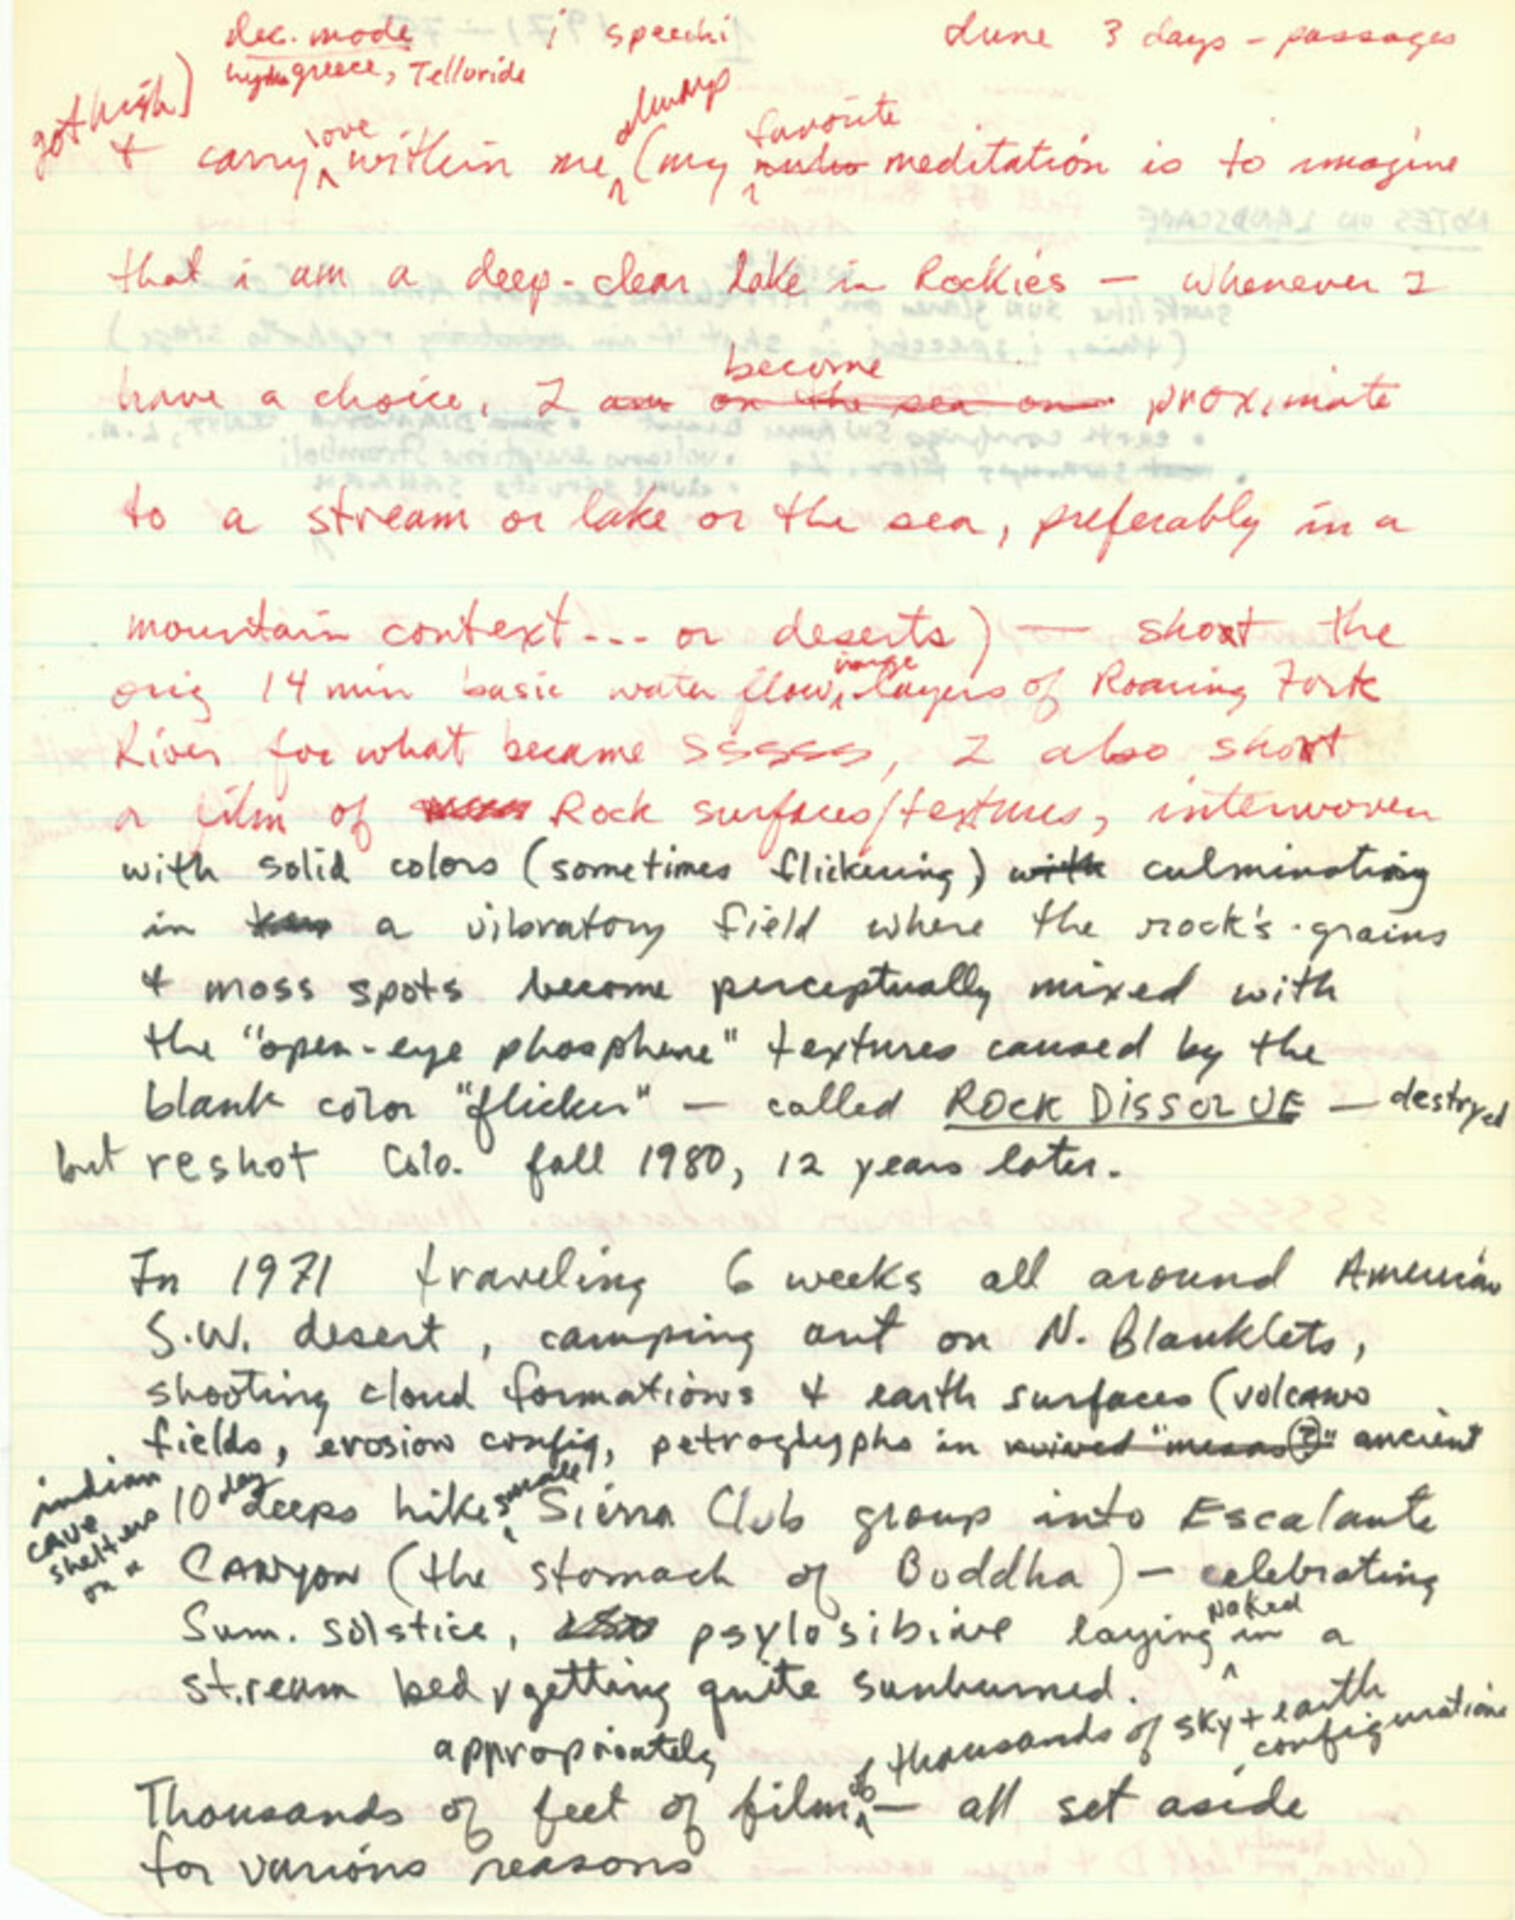 dec. mode i speechi June 3 days - passages
greece, Telluride
got high)
always
love favorite
+ carry within me (my meditation is to imagine
that i am a deep-clear lake in Rockies — whenever I
become
have a choice, I am on the sea on proximate
to a stream or lake or the sea, preferably in a
mountain context... or deserts) — shoot the
image
orig 14 min basic water flow, layers of Roaring Fork
River for what became SSSSS, I also shot
a film of Rock surfaces/textures, interwoven
with solid colors (sometimes flickering) with culminating
in a vibratory field where the rock's grains
+ moss spots become perceptually mixed with
the "open-eye phosphene" textures caused by the
blank color "flicker" — called ROCK DISSOLVE — destryed
but reshot Colo. fall 1980, 12 years later.
In 1971 traveling 6 weeks all around American
S.W. desert, camping out on N. Blanklets,
shooting cloud formations + earth surfaces (volcano
fields, erosion config, petroglyphs in ruined "mesas(?)" ancient
indian cave shelters on a
day small
10 deeps hike, Sierra Club group into Escalante
CANYON (the stomach of Buddha) — celebrating
naked
Sum. solstice, psylosibine laying in a
stream bed + getting quite sunburned.
appropriately of thousands of sky + earth configurations
Thousands of feet of film — all set aside
for various reasons